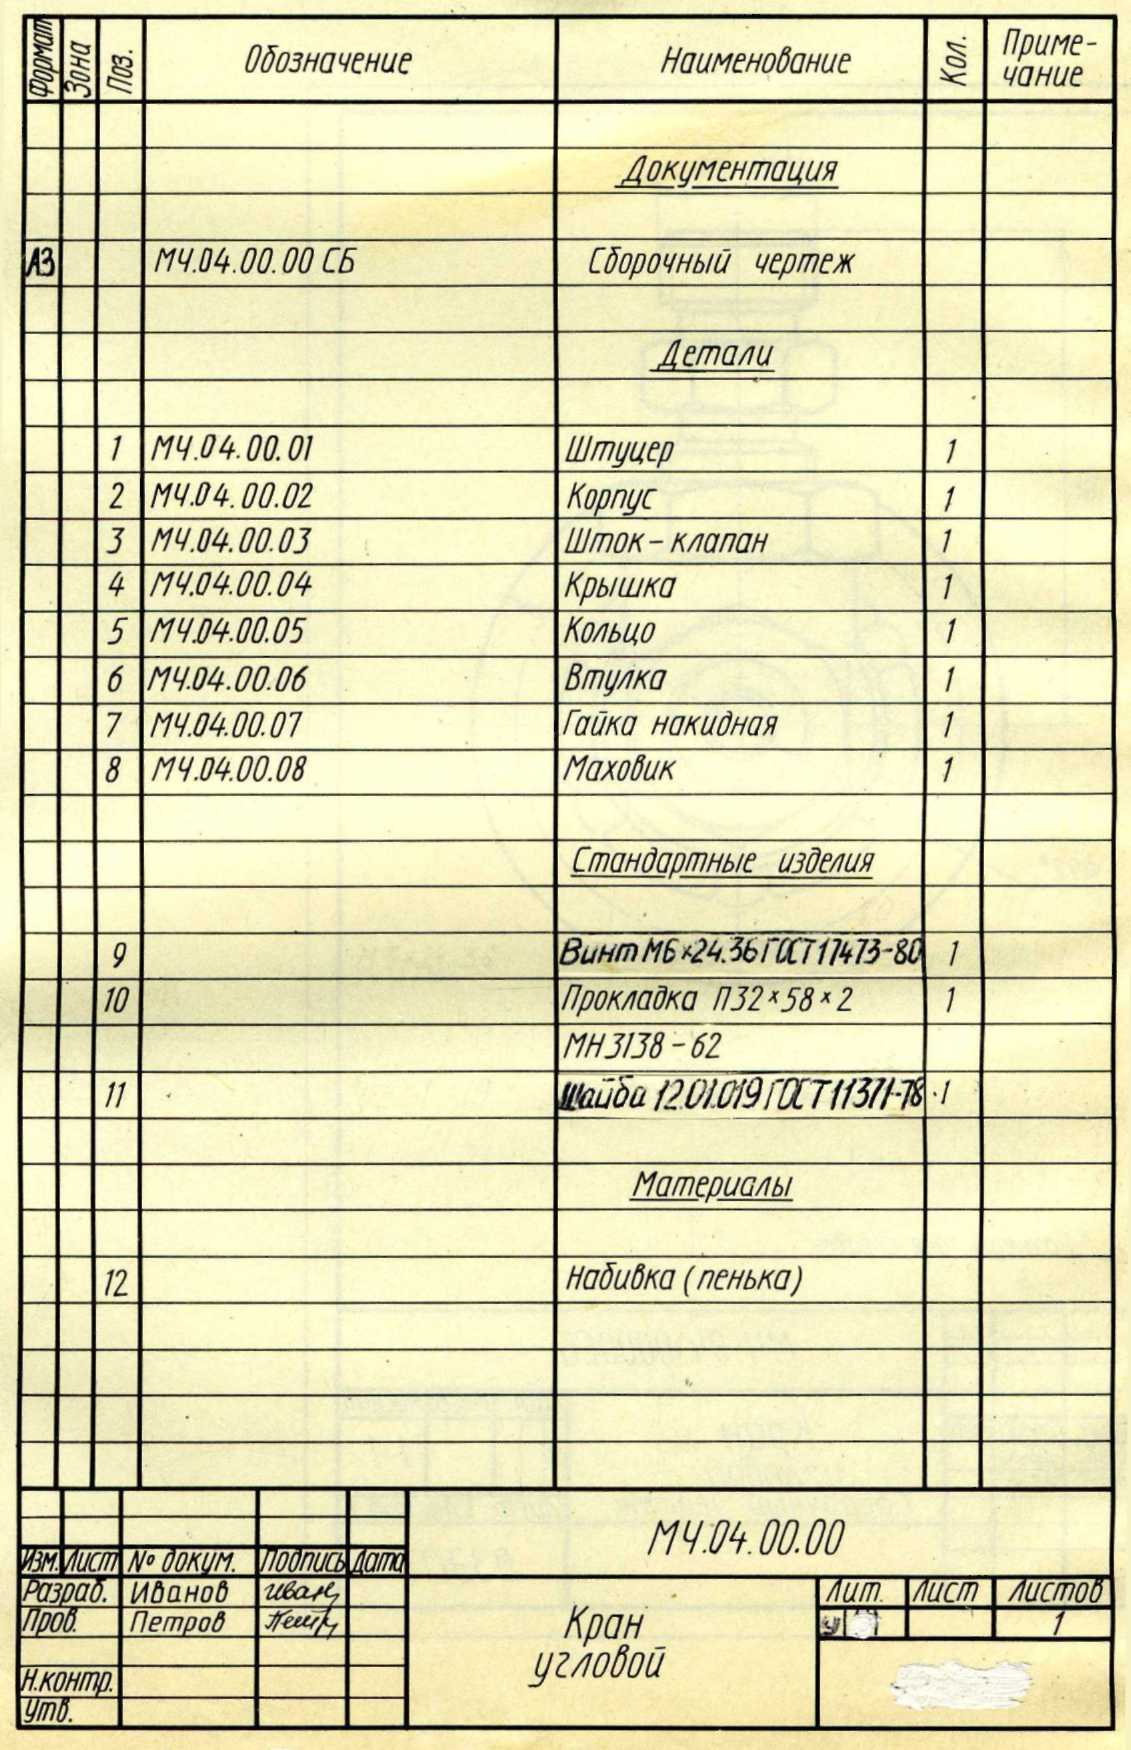 Формат Зона Поз. Обозначение Наименование Кол. Приме-
чание
Документация
А3 МЧ.04.00.00 СБ Сборочный чертеж
Детали
1 МЧ.04.00.01 Штуцер 1
2 МЧ.04.00.02 Корпус 1
3 МЧ.04.00.03 Шток-клапан 1
4 МЧ.04.00.04 Крышка 1
5 МЧ.04.00.05 Кольцо 1
6 МЧ.04.00.06 Втулка 1
7 МЧ.04.00.07 Гайка накидная 1
8 МЧ.04.00.08 Маховик 1
Стандартные изделия
9 Винт М6×24.36 ГОСТ 17473-80 1
10 Прокладка П32×58×2 1
МН 3138-62
11 Шайба 12.01.019 ГОСТ 11371-78 1
Материалы
12 Набивка (пенька)
МЧ.04.00.00
Изм. Лист № докум. Подпись Дата
Разраб. Иванов Иван
Пров. Петров Петр
Н.контр.
Утв.
Кран
угловой
Лит. Лист Листов
у 1